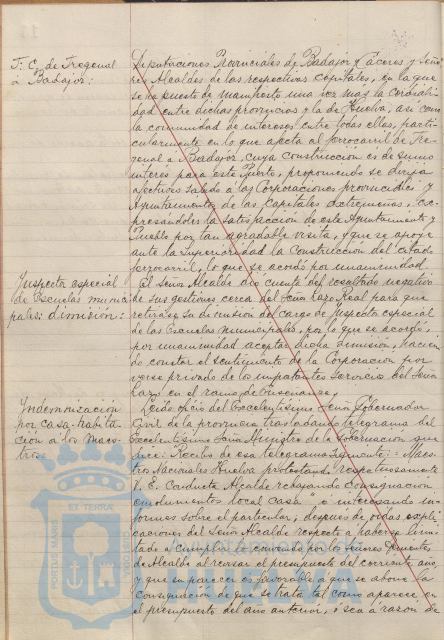 F. C. de Fregenal
á Badajoz:
Diputaciones Provinciales de Badajoz y Cáceres y Seño
res Alcaldes de las respectivas capitales, en la que
se ha puesto de manifiesto una vez mas la cordiali
dad entre dichas provincias y la de Huelva, así como
la comunidad de intereses entre todas ellas, parti
cularmente en lo que afecta al ferrocarril de Fre
genal a Badajoz, cuya construcción es de sumo
interes para este Puerto, proponiendo se dirija
afectuoso saludo a las Corporaciones provinciales y
Ayuntamientos de las Capitales extremeñas, ex
presándoles la satisfacción de este Ayuntamiento y
Pueblo por tan agradable visita, y que se apoye
ante la superioridad la construcción del citado
ferrocarril, lo que se acordó por unanimidad.
Inspector especial
de Escuelas munici
pales: dimisión:
El Señor Alcalde dió cuenta del resultado negativo
de sus gestiones cerca del Señor Lazo Real para que
retirase su dimisión del cargo de Inspector especial
de las Escuelas municipales, por lo que se acordó,
por unanimidad aceptar dicha dimisión, hacien
do constar el sentimiento de la Corporación por
verse privado de los importantes servicios del Señor
Lazo en el ramo de Enseñanza.
Indemnización
por casa-habita
ción a los Maes
tros
Leído oficio del Excelentísimo Señor Gobernador
Civil de la provincia trasladando telegrama del
Excelentísimo Señor Ministro de la Gobernacion que
dice: Recibo de esa telegrama siguiente: = Maes
tros Nacionales Huelva protestando respetuosamente
V. E. conducta Alcalde rebajando consignación
emolumentos local casa" é interesando in
formes sobre el particular, despues de oidas expli
caciones del Señor Alcalde respecto a haberse limi
tado a cumplir lo convenido por los Señores Tenientes
de Alcalde al revisar el presupuesto del corriente año,
y que su parecer es favorable a que se abone la
consignación de que se trata tal como aparece en
el presupuesto del año anterior, ó sea á razon de
PORTUS MARIS
ET TERRÆ
Ayuntamiento
HUELVA